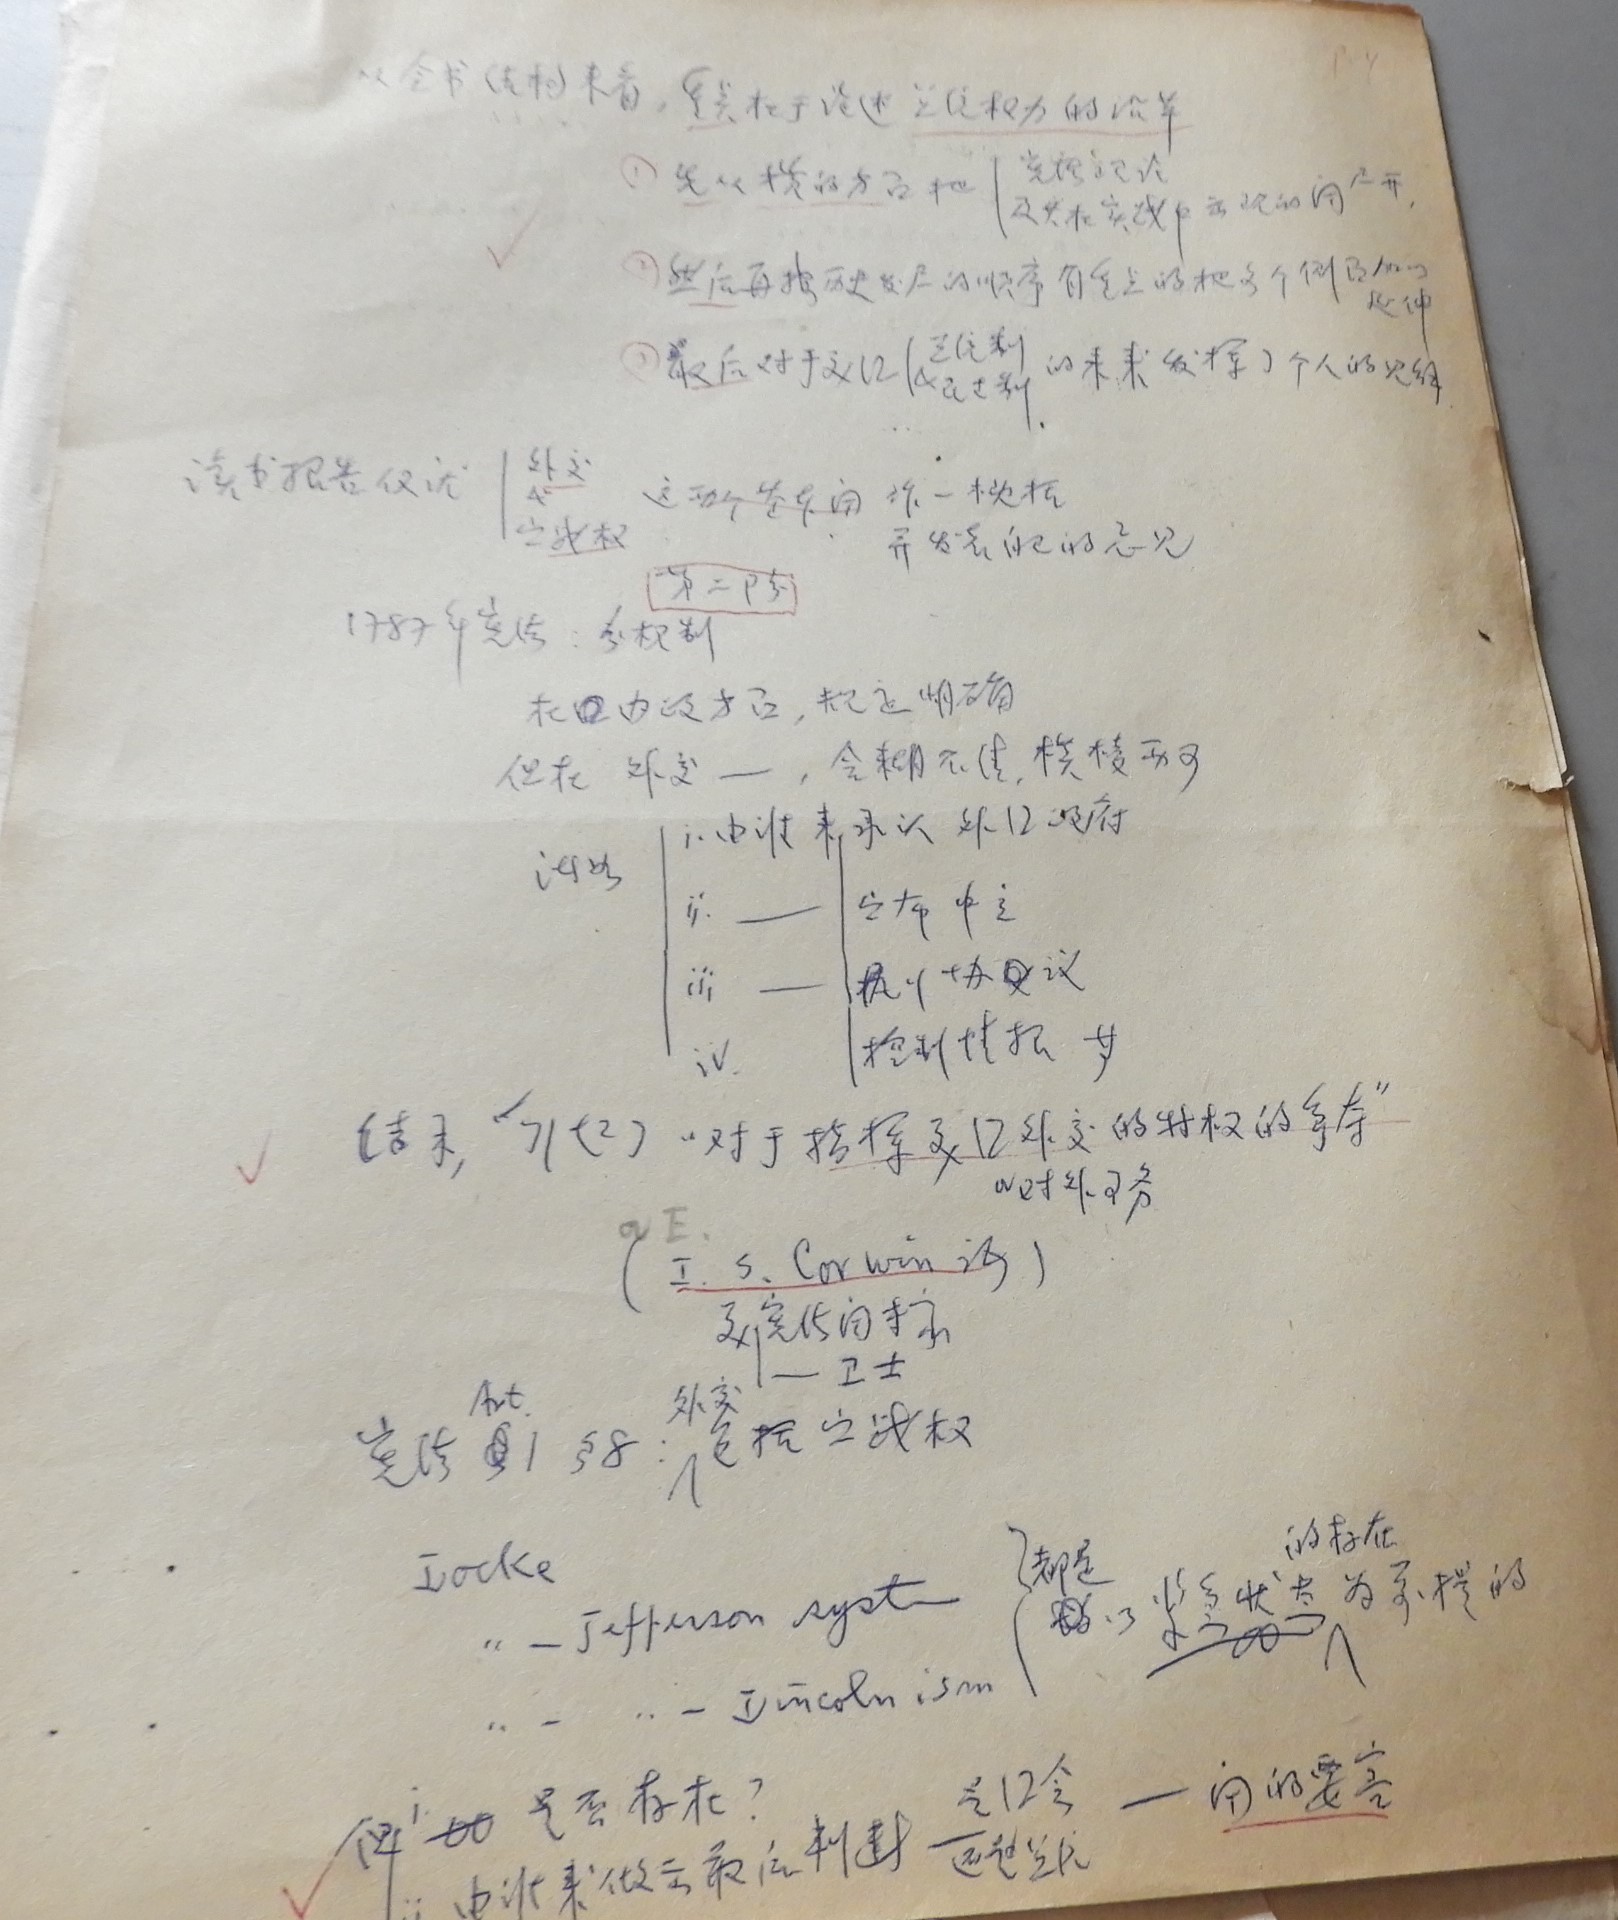 P.4
从全书(结构)来看，重点在于论述总统权力的沿革
① 先从横的方面把 宪法理论
及其在实践中出现的问 展开，
② 然后再按历史发展的顺序有重点的把各个侧面加以
延伸
③ 最后对于美囗 总统制 的未来发挥了个人的见解
& 民主制
读书报告仅就 外交 这两个基本问 作一概括
&
宣战权 并发表自己的意见
第二部分
1787年宪法：分权制
在内政方面，规定明确
但在 外交 —，含糊不清，模棱两可
诸如 i. 由谁来承认外囗政府
ii. — 宣布中立
iii — 执行协议
iv. 控制情报 等
结果，"引起了"对于指挥美囗外交的特权的争夺"
对外事务
E.
( S. Corwin 语 )
美宪法问专家
— 卫士
Art. 外交
宪法 1 §8： 包括宣战权
Locke
" — Jefferson system 都是 的存在
以紧急状态为前提的
" — " — Lincolnism
但 i. 是否存在？
ii 由谁来做出最后判断 是囗会 — 问的要害
还是总统